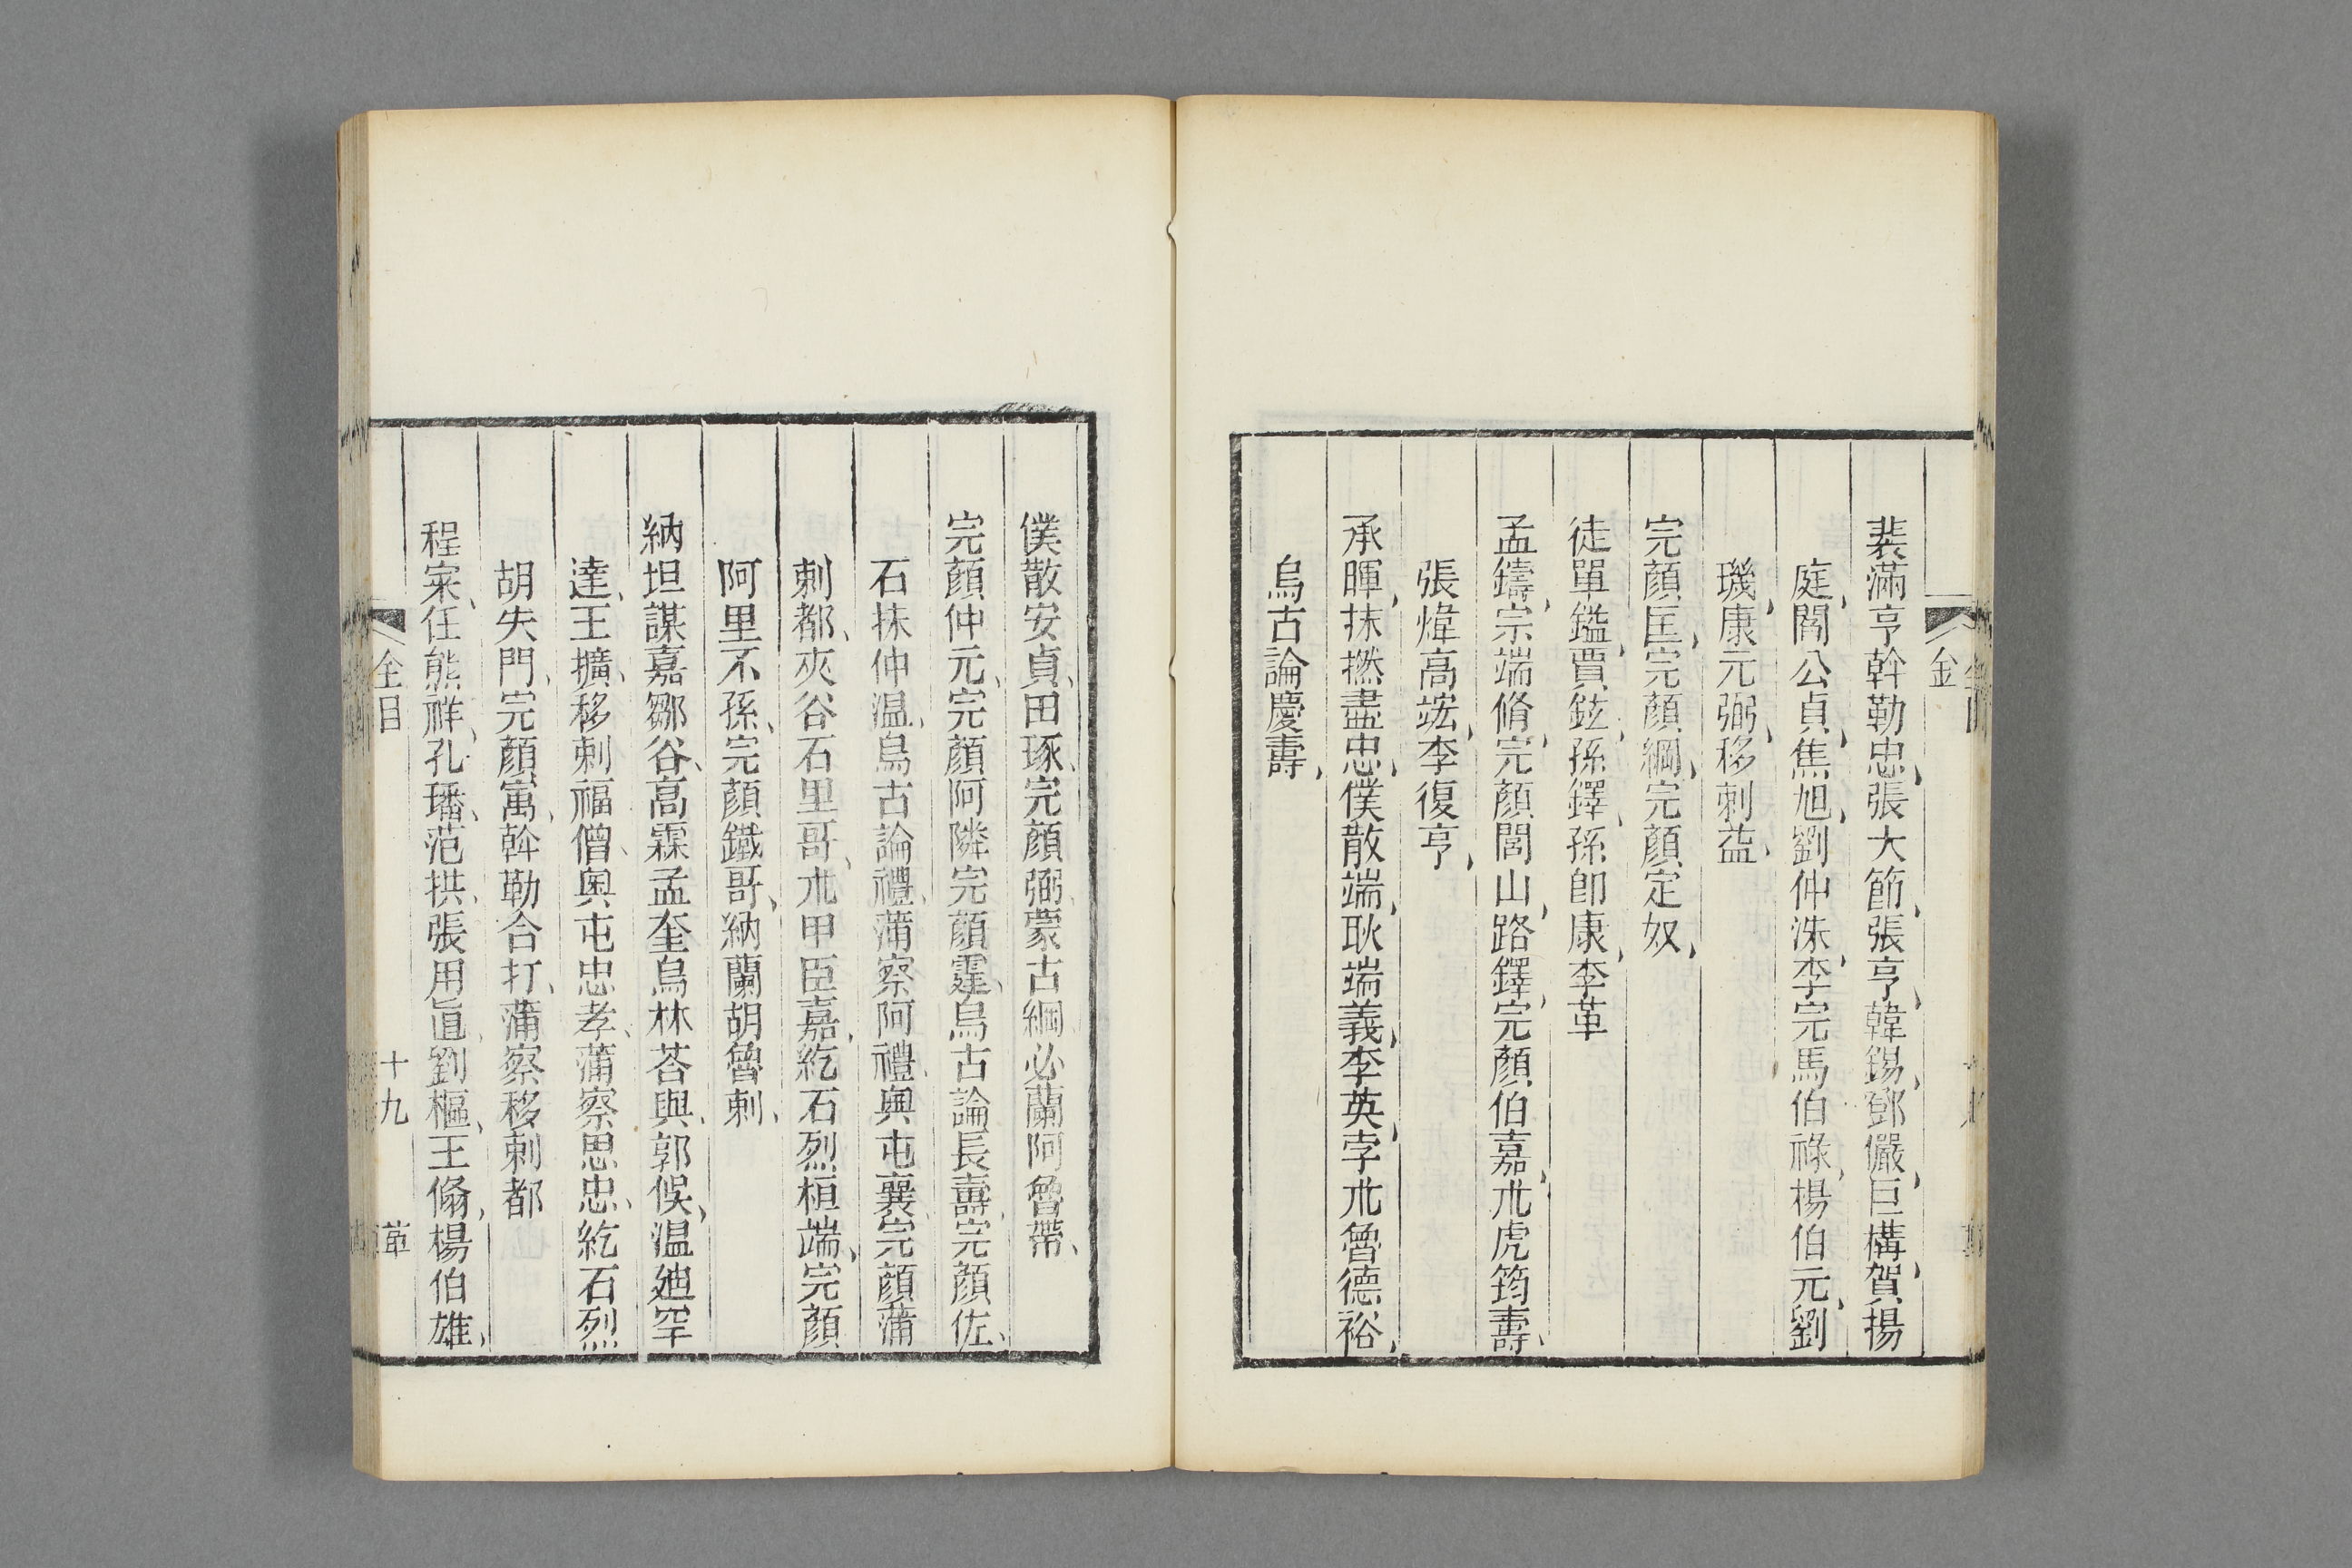 金
裴滿亨、斡勒忠、張大節、張亨、韓錫、鄧儼、巨構、賀揚
庭、閻公貞、焦旭、劉仲洙、李完、馬伯祿、楊伯元、劉
璣、康元弼、移剌益、
完顏匡、完顏綱、完顏定奴、
徒單鎰、賈鉉、孫鐸、孫卽康、李革
孟鑄、宗端脩、完顏閭山、路鐸、完顏伯嘉、朮虎筠壽、
張煒、高竑、李復亨、
承暉、抹撚盡忠、僕散端、耿端義、李英、孛朮魯德裕、
烏古論慶壽、
僕散安貞、田琢、完顏弼、蒙古綱、必蘭阿魯帶、
完顏仲元、完顏阿隣、完顏霆、烏古論長壽、完顏佐、
石抹仲温、烏古論禮、蒲察阿禮、奥屯襄、完顏蒲
剌都、夾谷石里哥、朮甲臣嘉、紇石烈桓端、完顏
阿里不孫、完顏鐵哥、納蘭胡魯剌、
納坦謀嘉、鄒谷、高霖、孟奎、烏林荅與、郭俁、温廸罕
達、王擴、移剌福僧、奥屯忠孝、蒲察思忠、紇石烈
胡失門、完顏寓、斡勒合打、蒲察移剌都
程寀、任熊祥、孔璠、范拱、張用直、劉樞、王翛、楊伯雄、
金目
十九